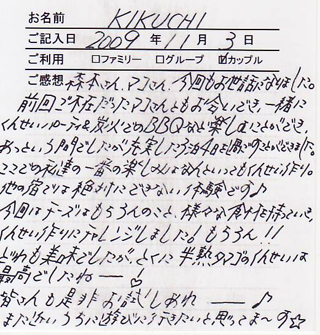 お名前 KIKUCHI
ご記入日 2009年 11月 3日
ご利用 □ファミリー □グループ ☑カップル
ご感想 森本さん、アコさん、今回もお世話になりました。
前回ご不在だったアコさんともお会いでき、一緒に
くんせいパーティーや炭火でのBBQなど楽しむことができ、
あっという間でしたが充実した3泊4日を過ごすことができました。
ここでの私達の一番の楽しみはなんといってもくんせい作り。
他の宿では絶対にできない体験です♪
今回はチーズはもちろんのこと、様々な食材を持っていき、
くんせい作りにチャレンジしました!もちろん!!
どれも美味でしたが、とくに半熟タマゴのくんせいは
最高でしたねー!
皆さんも是非お試しあれー♪
また近いうちに遊びに行きたいと思ってま〜す☆